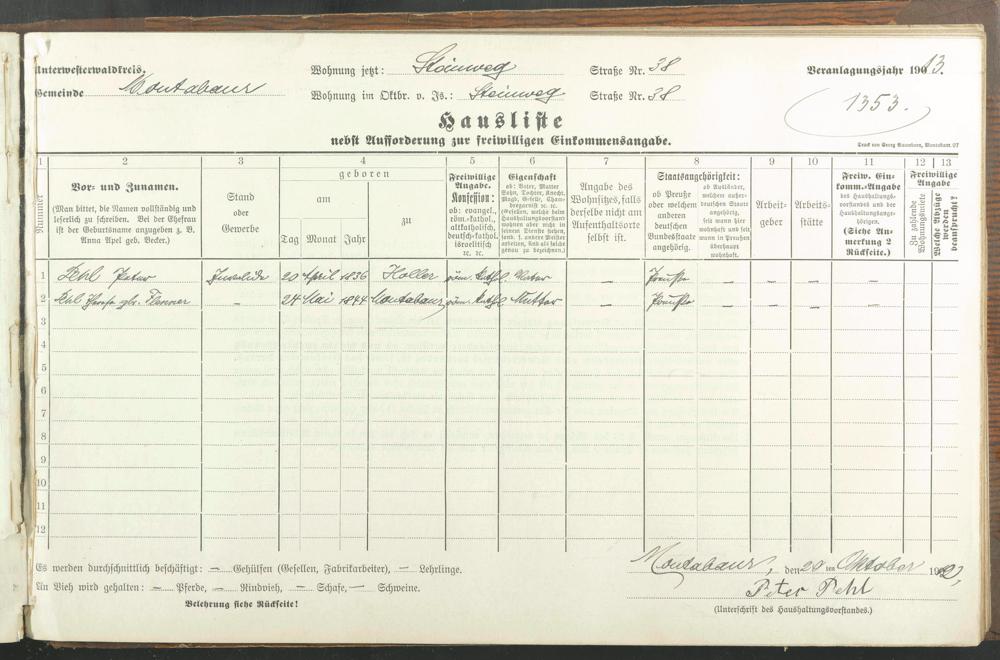 Unterwesterwaldkreis.
Gemeinde Montabaur
Wohnung jetzt: Steinweg Straße Nr. 38
Wohnung im Oktbr. v. Js.: Steinweg Straße Nr. 38
Veranlagungsjahr 1913.
1353.
Hausliste
nebst Aufforderung zur freiwilligen Einkommensangabe.
1 2 3 4 5 6 7 8 9 10 11 12 13
Nummer
Vor- und Zunamen.
(Man bittet, die Namen vollständig und
leserlich zu schreiben. Bei der Ehefrau
ist der Geburtsname anzugeben z. B.
Anna Apel geb. Becker.)
Stand
oder
Gewerbe
geboren
am
Tag Monat Jahr
zu
Freiwillige
Angabe.
Konfession:
ob: evangel.,
röm.-kathol.,
altkatholisch,
deutsch-kathol.
israelitisch
ec. ec.
Eigenschaft
ob: Vater, Mutter
Sohn, Tochter, Knecht,
Magd, Geselle, Cham-
bregarnist ec. ec.
Angabe des
Wohnsitzes, falls
derselbe nicht am
Aufenthaltsorte
selbst ist.
Staatsangehörigkeit:
ob Preuße
oder welchem
anderen
deutschen
Bundesstaate
angehörig.
ob Ausländer,
welchem außer-
deutschen Staate
angehörig,
seit wann hier
wohnhaft und seit
wann in Preußen
überhaupt
wohnhaft.
Arbeit-
geber
Arbeits-
stätte
Freiw. Ein-
komm.-Angabe
des Haushaltungs-
vorstandes und der
Haushaltungsange-
hörigen.
(Siehe An-
merkung 2
Rückseite.)
Freiwillige
Angabe
Zu zahlende
Wohnungsmiete
Welche Abzüge
werden
beansprucht?
1 Pehl Peter Invalide 20 April 1836 Holler röm. kathl. Vater — Preuße — — —
2 Pehl geb. — 24 Mai 1844 Montabaur röm. kathl. Mutter — Preuße — — —
3
4
5
6
7
8
9
10
11
12
Es werden durchschnittlich beschäftigt: — Gehülfen (Gesellen, Fabrikarbeiter), — Lehrlinge.
An Vieh wird gehalten: — Pferde, — Rindvieh, — Schafe, — Schweine.
Belehrung siehe Rückseite!
Montabaur, den 20ten Oktober
Peter Pehl
(Unterschrift des Haushaltungsvorstandes.)